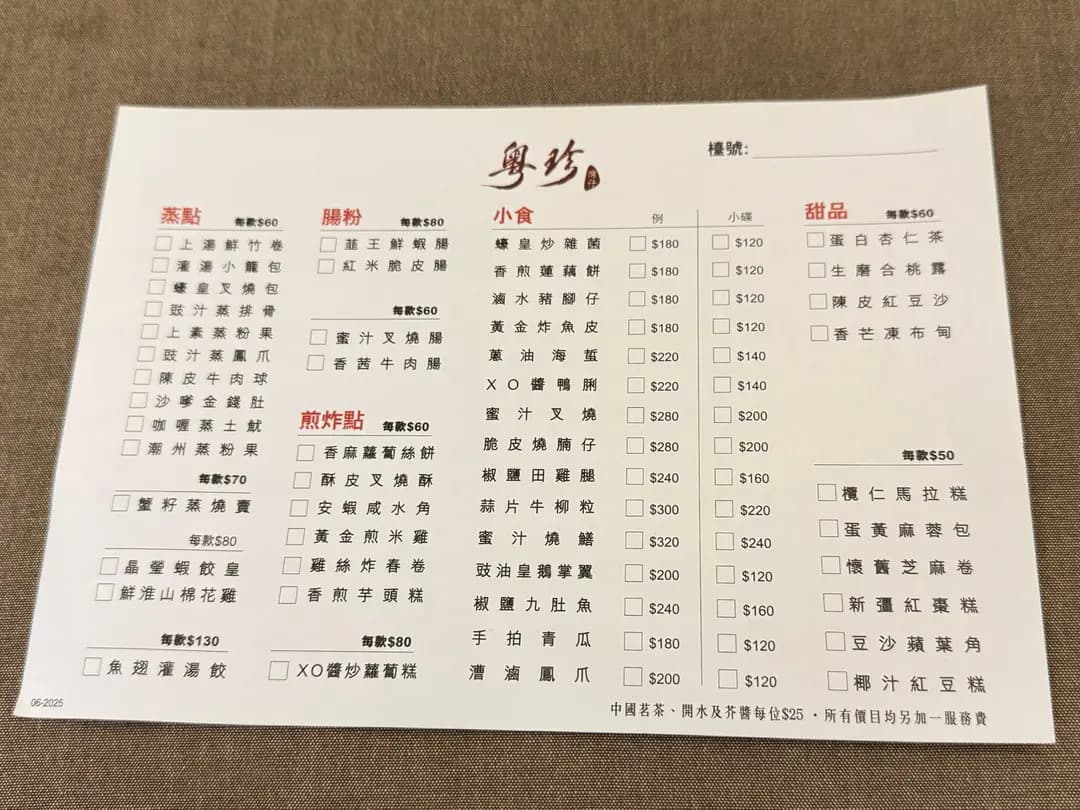 粵珍
灣仔
檯號:
蒸點 每款$60
上湯鮮竹卷
灌湯小籠包
蠔皇叉燒包
豉汁蒸排骨
上素蒸粉果
豉汁蒸鳳爪
陳皮牛肉球
沙嗲金錢肚
咖喱蒸土魷
潮州蒸粉果
每款$70
蟹籽蒸燒賣
每款$80
晶瑩蝦餃皇
鮮淮山棉花雞
每款$130
魚翅灌湯餃
06-2025
腸粉 每款$80
韮王鮮蝦腸
紅米脆皮腸
每款$60
蜜汁叉燒腸
香茜牛肉腸
煎炸點 每款$60
香麻蘿蔔絲餅
酥皮叉燒酥
安蝦咸水角
黃金煎米雞
雞絲炸春卷
香煎芋頭糕
每款$80
XO醬炒蘿蔔糕
小食 例 小碟
蠔皇炒雜菌 $180 $120
香煎蓮藕餅 $180 $120
滷水豬腳仔 $180 $120
黃金炸魚皮 $180 $120
蔥油海蜇 $220 $140
XO醬鴨脷 $220 $140
蜜汁叉燒 $280 $200
脆皮燒腩仔 $280 $200
椒鹽田雞腿 $240 $160
蒜片牛柳粒 $300 $220
蜜汁燒鱔 $320 $240
豉油皇鵝掌翼 $200 $120
椒鹽九肚魚 $240 $160
手拍青瓜 $180 $120
漕滷鳳爪 $200 $120
甜品 每款$60
蛋白杏仁茶
生磨合桃露
陳皮紅豆沙
香芒凍布甸
每款$50
欖仁馬拉糕
蛋黃麻蓉包
懷舊芝麻卷
新彊紅棗糕
豆沙蘋葉角
椰汁紅豆糕
中國茗茶、開水及芥醬每位$25・所有價目均另加一服務費